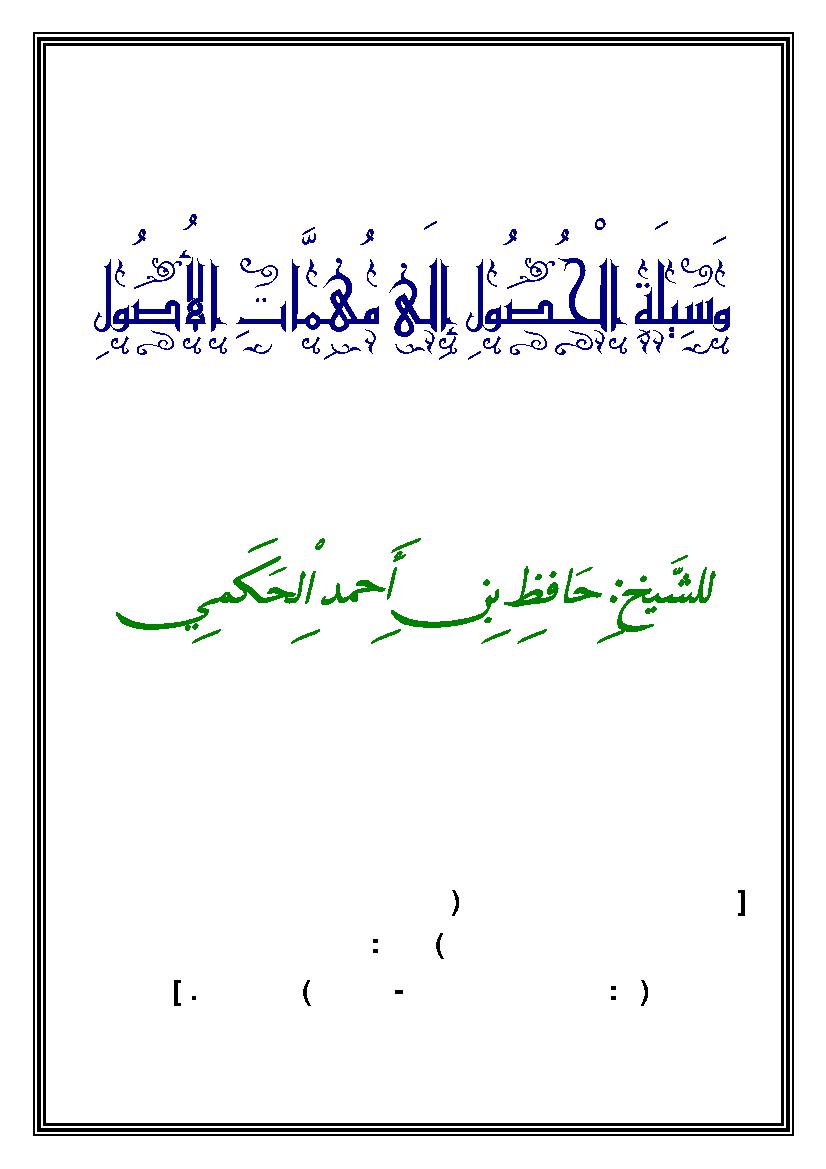 وَسِيلَةُ الْحُصُولِ إِلَى مُهِمَّاتِ الْأُصُولِ
للشَّيخِ: حَافِظِ بِنِ أَحمدِ الْحَكَمِي
[ (
) :
( : - ) .]